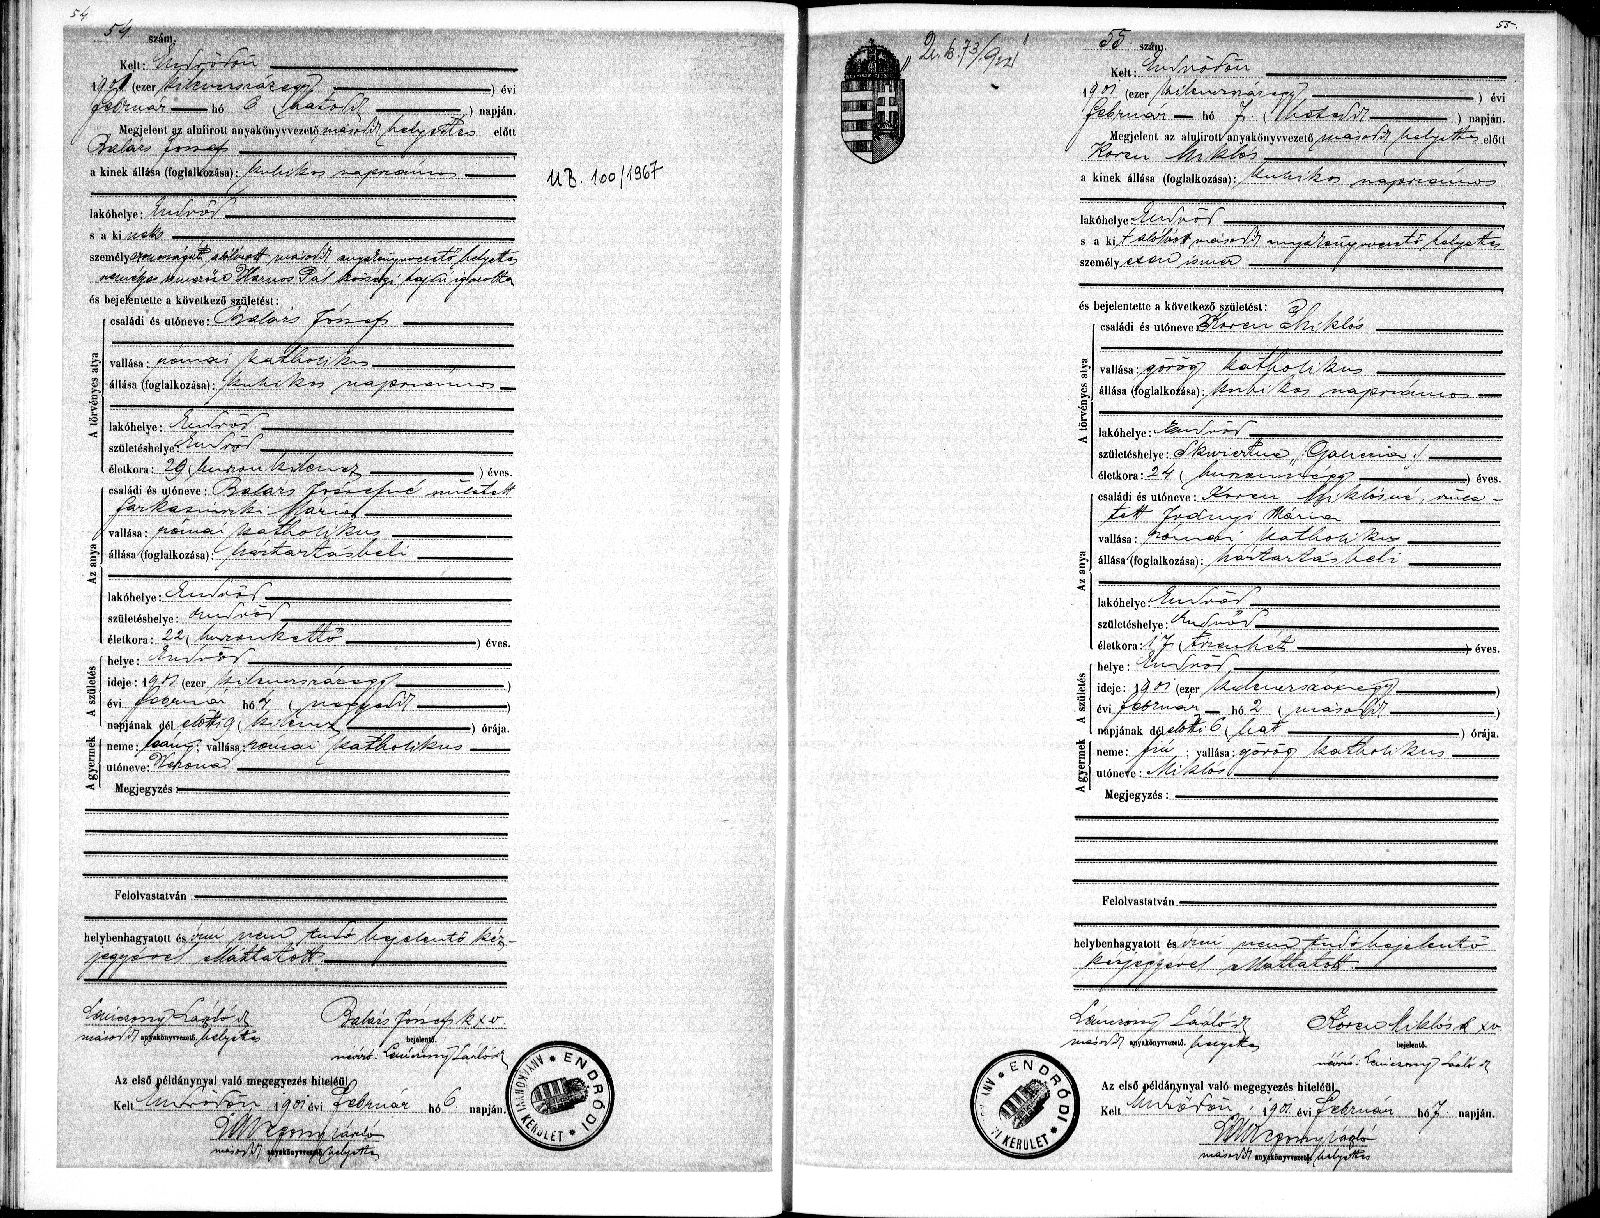 54
54 szám.
Kelt: Endrődön
1901 (ezer kilencszázegy ) évi
február hó 6 (hatodik ) napján.
Megjelent az alulirott anyakönyvvezető másodh helyettes előtt
Balázs József
a kinek állása (foglalkozása): kubikos napszámos
lakóhelye: Endrőd
s a kinek
személyazonosságát alólírott másodh anyakönyvvezető helyettes
Pál községi
és bejelentette a következő születést:
A törvényes atya
családi és utóneve: Balázs József
vallása: római katholikus
állása (foglalkozása): kubikos napszámos
lakóhelye: Endrőd
születéshelye: Endrőd
életkora: 29 (huszonkilencz ) éves.
Az anya
családi és utóneve: Balázs Józsefné született
Farkasinszki Mária
vallása: római katholikus
állása (foglalkozása): háztartásbeli
lakóhelye: Endrőd
születéshelye: Endrőd
életkora: 22 (huszonkettő ) éves.
A születés
helye: Endrőd
ideje: 1901 (ezer kilencszázegy )
évi február hó 4 (negyedik )
napjának dél előtti 9 (kilencz ) órája.
A gyermek
neme: leány; vallása: római katholikus
utóneve: Verona
Megjegyzés:
Felolvastatván
helybenhagyatott és írni nem tudó bejelentő kéz-
jegyével elláttatott
László h
másodh anyakönyvvezető helyettes
Balázs József k x v
bejelentő.
névíró: László h
Az első példánynyal való megegyezés hiteléül
Kelt Endrődön, 1901 évi február hó 6 napján.
László
másodh anyakönyvvezető helyettes
ENDRŐDI ANYAKÖNYVI KERÜLET
UB. 100/1967
55.
73/922
55 szám.
Kelt: Endrődön
1901 (ezer kilencszázegy ) évi
február hó 7 (hetedik ) napján.
Megjelent az alulirott anyakönyvvezető másodh helyettes előtt
Koren Miklós
a kinek állása (foglalkozása): kubikos napszámos
lakóhelye: Endrőd
s a kit alólírott másodh anyakönyvvezető helyettes
személyesen ismer
és bejelentette a következő születést:
A törvényes atya
családi és utóneve: Koren Miklós
vallása: görög katholikus
állása (foglalkozása): kubikos napszámos
lakóhelye: Endrőd
születéshelye:
életkora: 24 (huszonnégy ) éves.
Az anya
családi és utóneve: Koren Miklósné, szüle-
tett Mária
vallása: római katholikus
állása (foglalkozása): háztartásbeli
lakóhelye: Endrőd
születéshelye: Endrőd
életkora: 17 (tizenhét ) éves.
A születés
helye: Endrőd
ideje: 1901 (ezer kilencszázegy )
évi február hó 2 (második )
napjának dél előtti 6 (hat ) órája.
A gyermek
neme: fiú; vallása: görög katholikus
utóneve: Miklós
Megjegyzés:
Felolvastatván
helybenhagyatott és írni nem tudó bejelentő
kézjegyével elláttatott
László h
másodh anyakönyvvezető helyettes
Koren Miklós k x v
bejelentő.
névíró: László h
Az első példánynyal való megegyezés hiteléül
Kelt Endrődön, 1901 évi február hó 7 napján.
László
másodh anyakönyvvezető helyettes
ENDRŐDI ANYAKÖNYVI KERÜLET